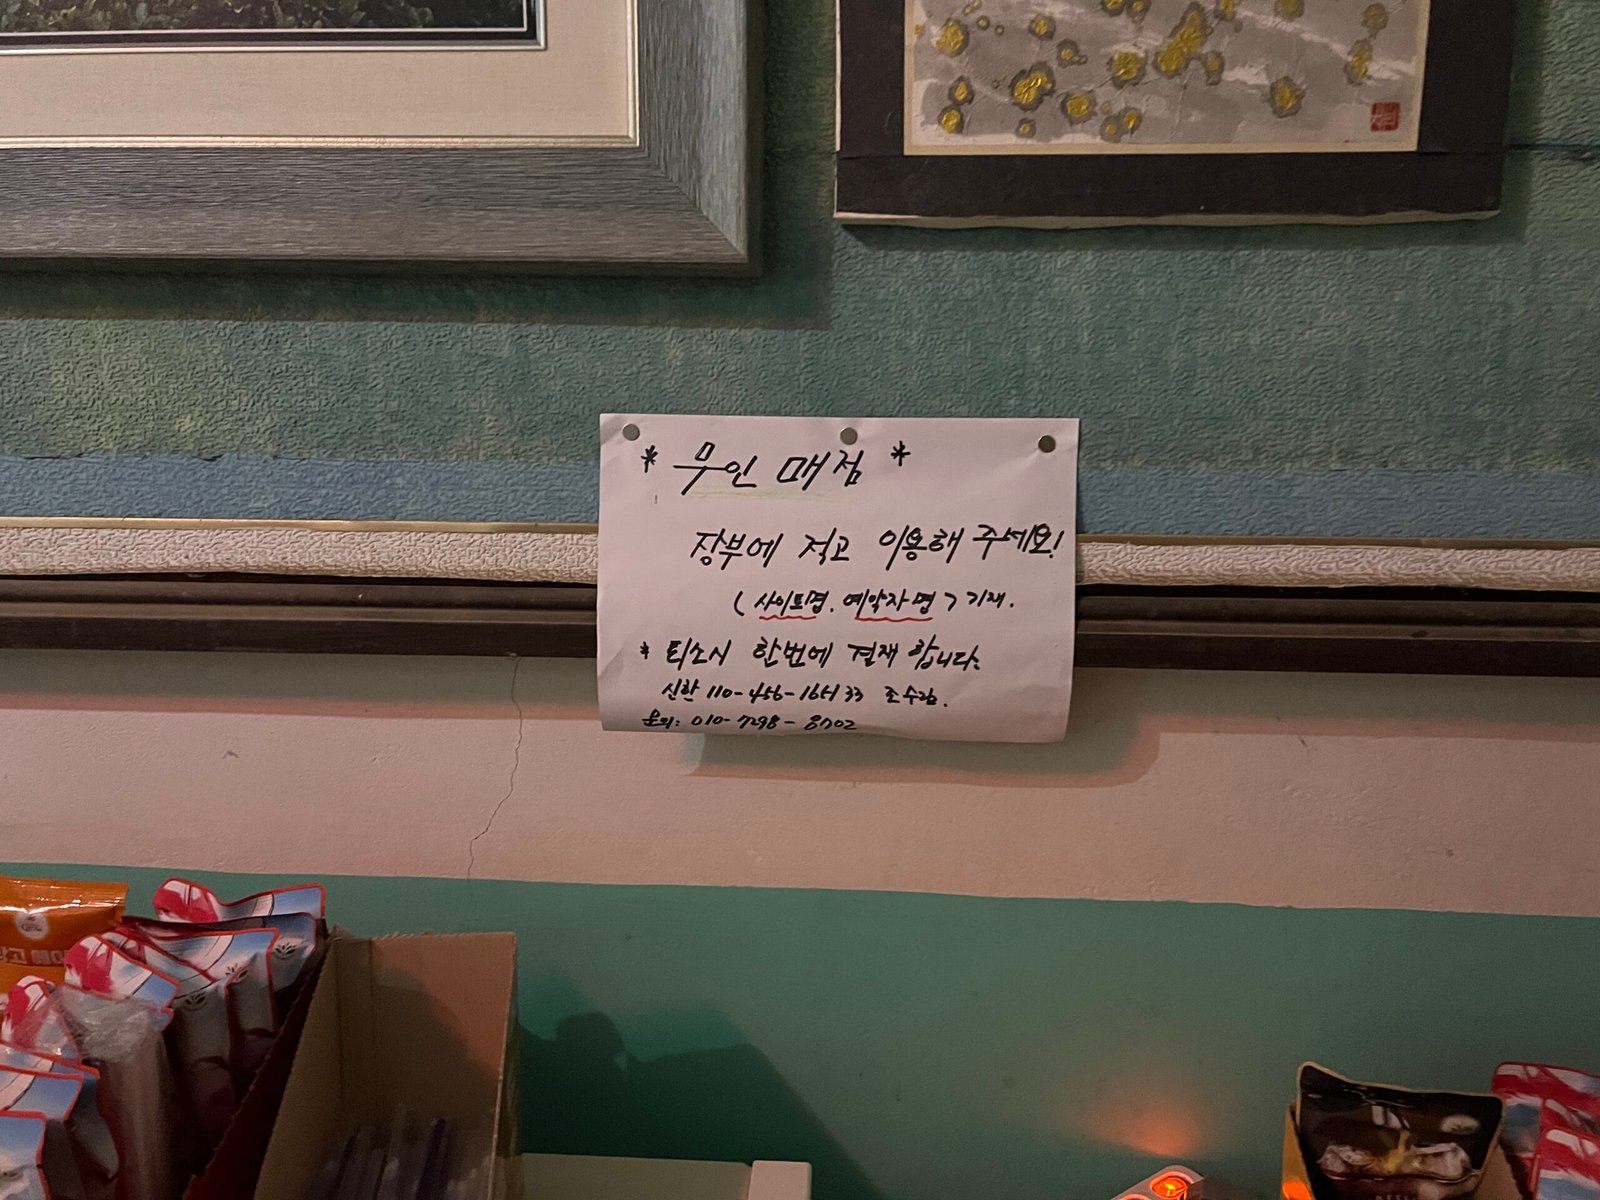 * 무인 매점 *
장부에 적고 이용해 주세요!
( 사이트명. 예약자명 ) 기재.
* 퇴소시 한번에 결재 합니다.
신한 110-456- 조수림.
문의: 010-7298-8702